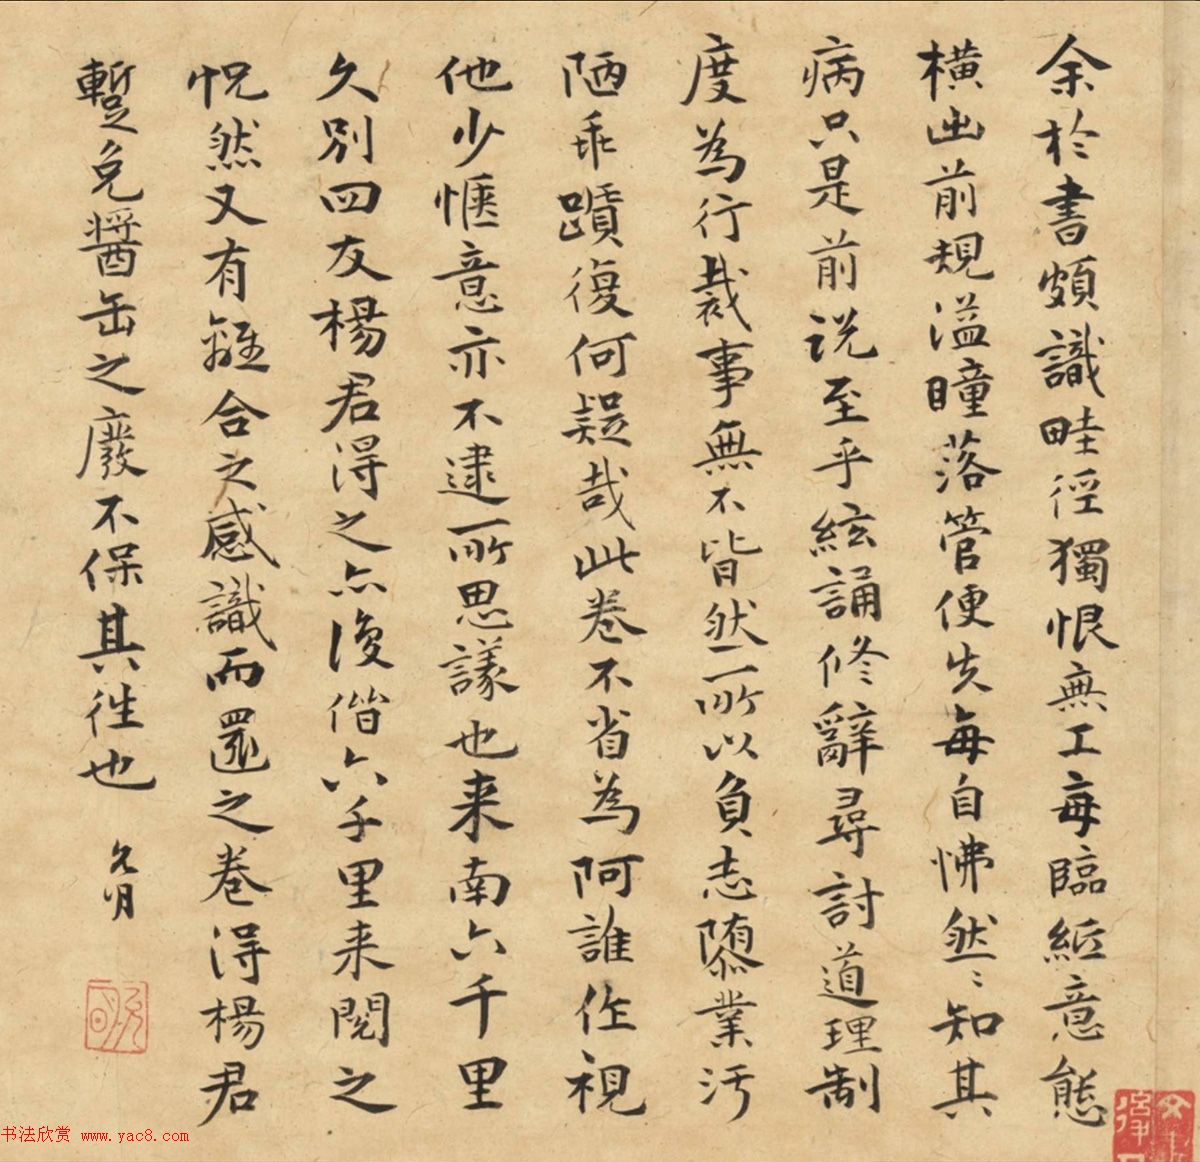 余於書頗識畦徑獨恨無工每臨紙意態
橫出前規溢瞳落管便失每自怫然〻知其
病只是前說至乎絃誦修辭尋討道理制
度為行裁事無不皆然所以負志隳業汚
陋乖躓復何疑哉此卷不省為阿誰作視
他少愜意亦不逮所思議也来南六千里
久別四友楊君得之亦復偕六千里来閱之
怳然又有離合之感識而還之卷得楊君
暫免醬缶之廢不保其往也
允明
书法欣赏 www.yac8.com